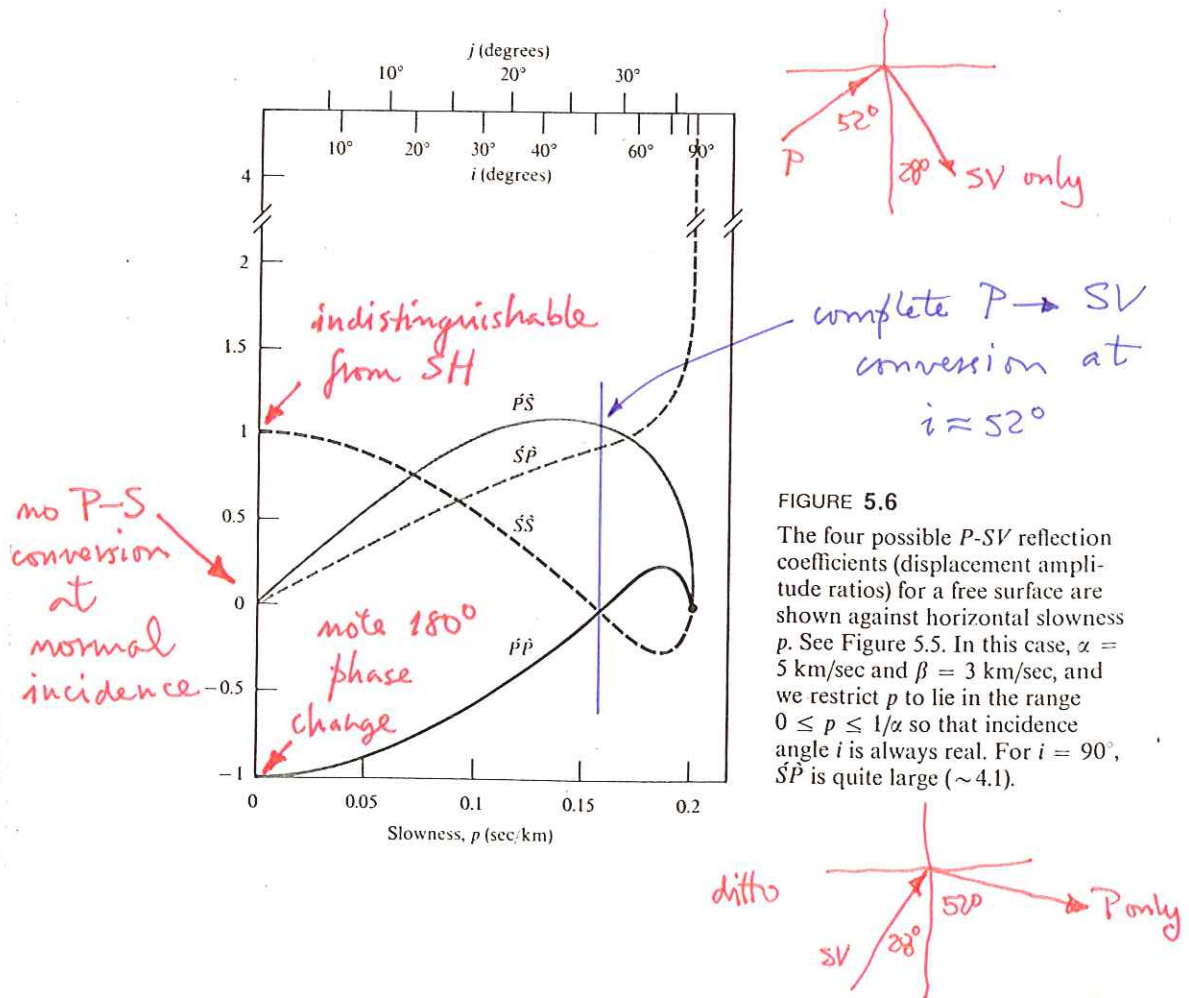 j (degrees)
10° 20° 30°
10° 20° 30° 40° 60° 90°
i (degrees)
4
2
1.5
1
0.5
0
−0.5
−1
0 0.05 0.1 0.15 0.2
Slowness, p (sec/km)
ṔS̀
ŚP̀
ŚS̀
ṔP̀
indistinguishable
from SH
no P-S
conversion
at
normal
incidence
note 180°
phase
change
52°
P
28°
SV only
complete P → SV
conversion at
i ≈ 52°
FIGURE 5.6
The four possible P-SV reflection
coefficients (displacement ampli-
tude ratios) for a free surface are
shown against horizontal slowness
p. See Figure 5.5. In this case, α =
5 km/sec and β = 3 km/sec, and
we restrict p to lie in the range
0 ≤ p ≤ 1/α so that incidence
angle i is always real. For i = 90°,
ŚP̀ is quite large (∼4.1).
ditto
52°
P only
28°
SV